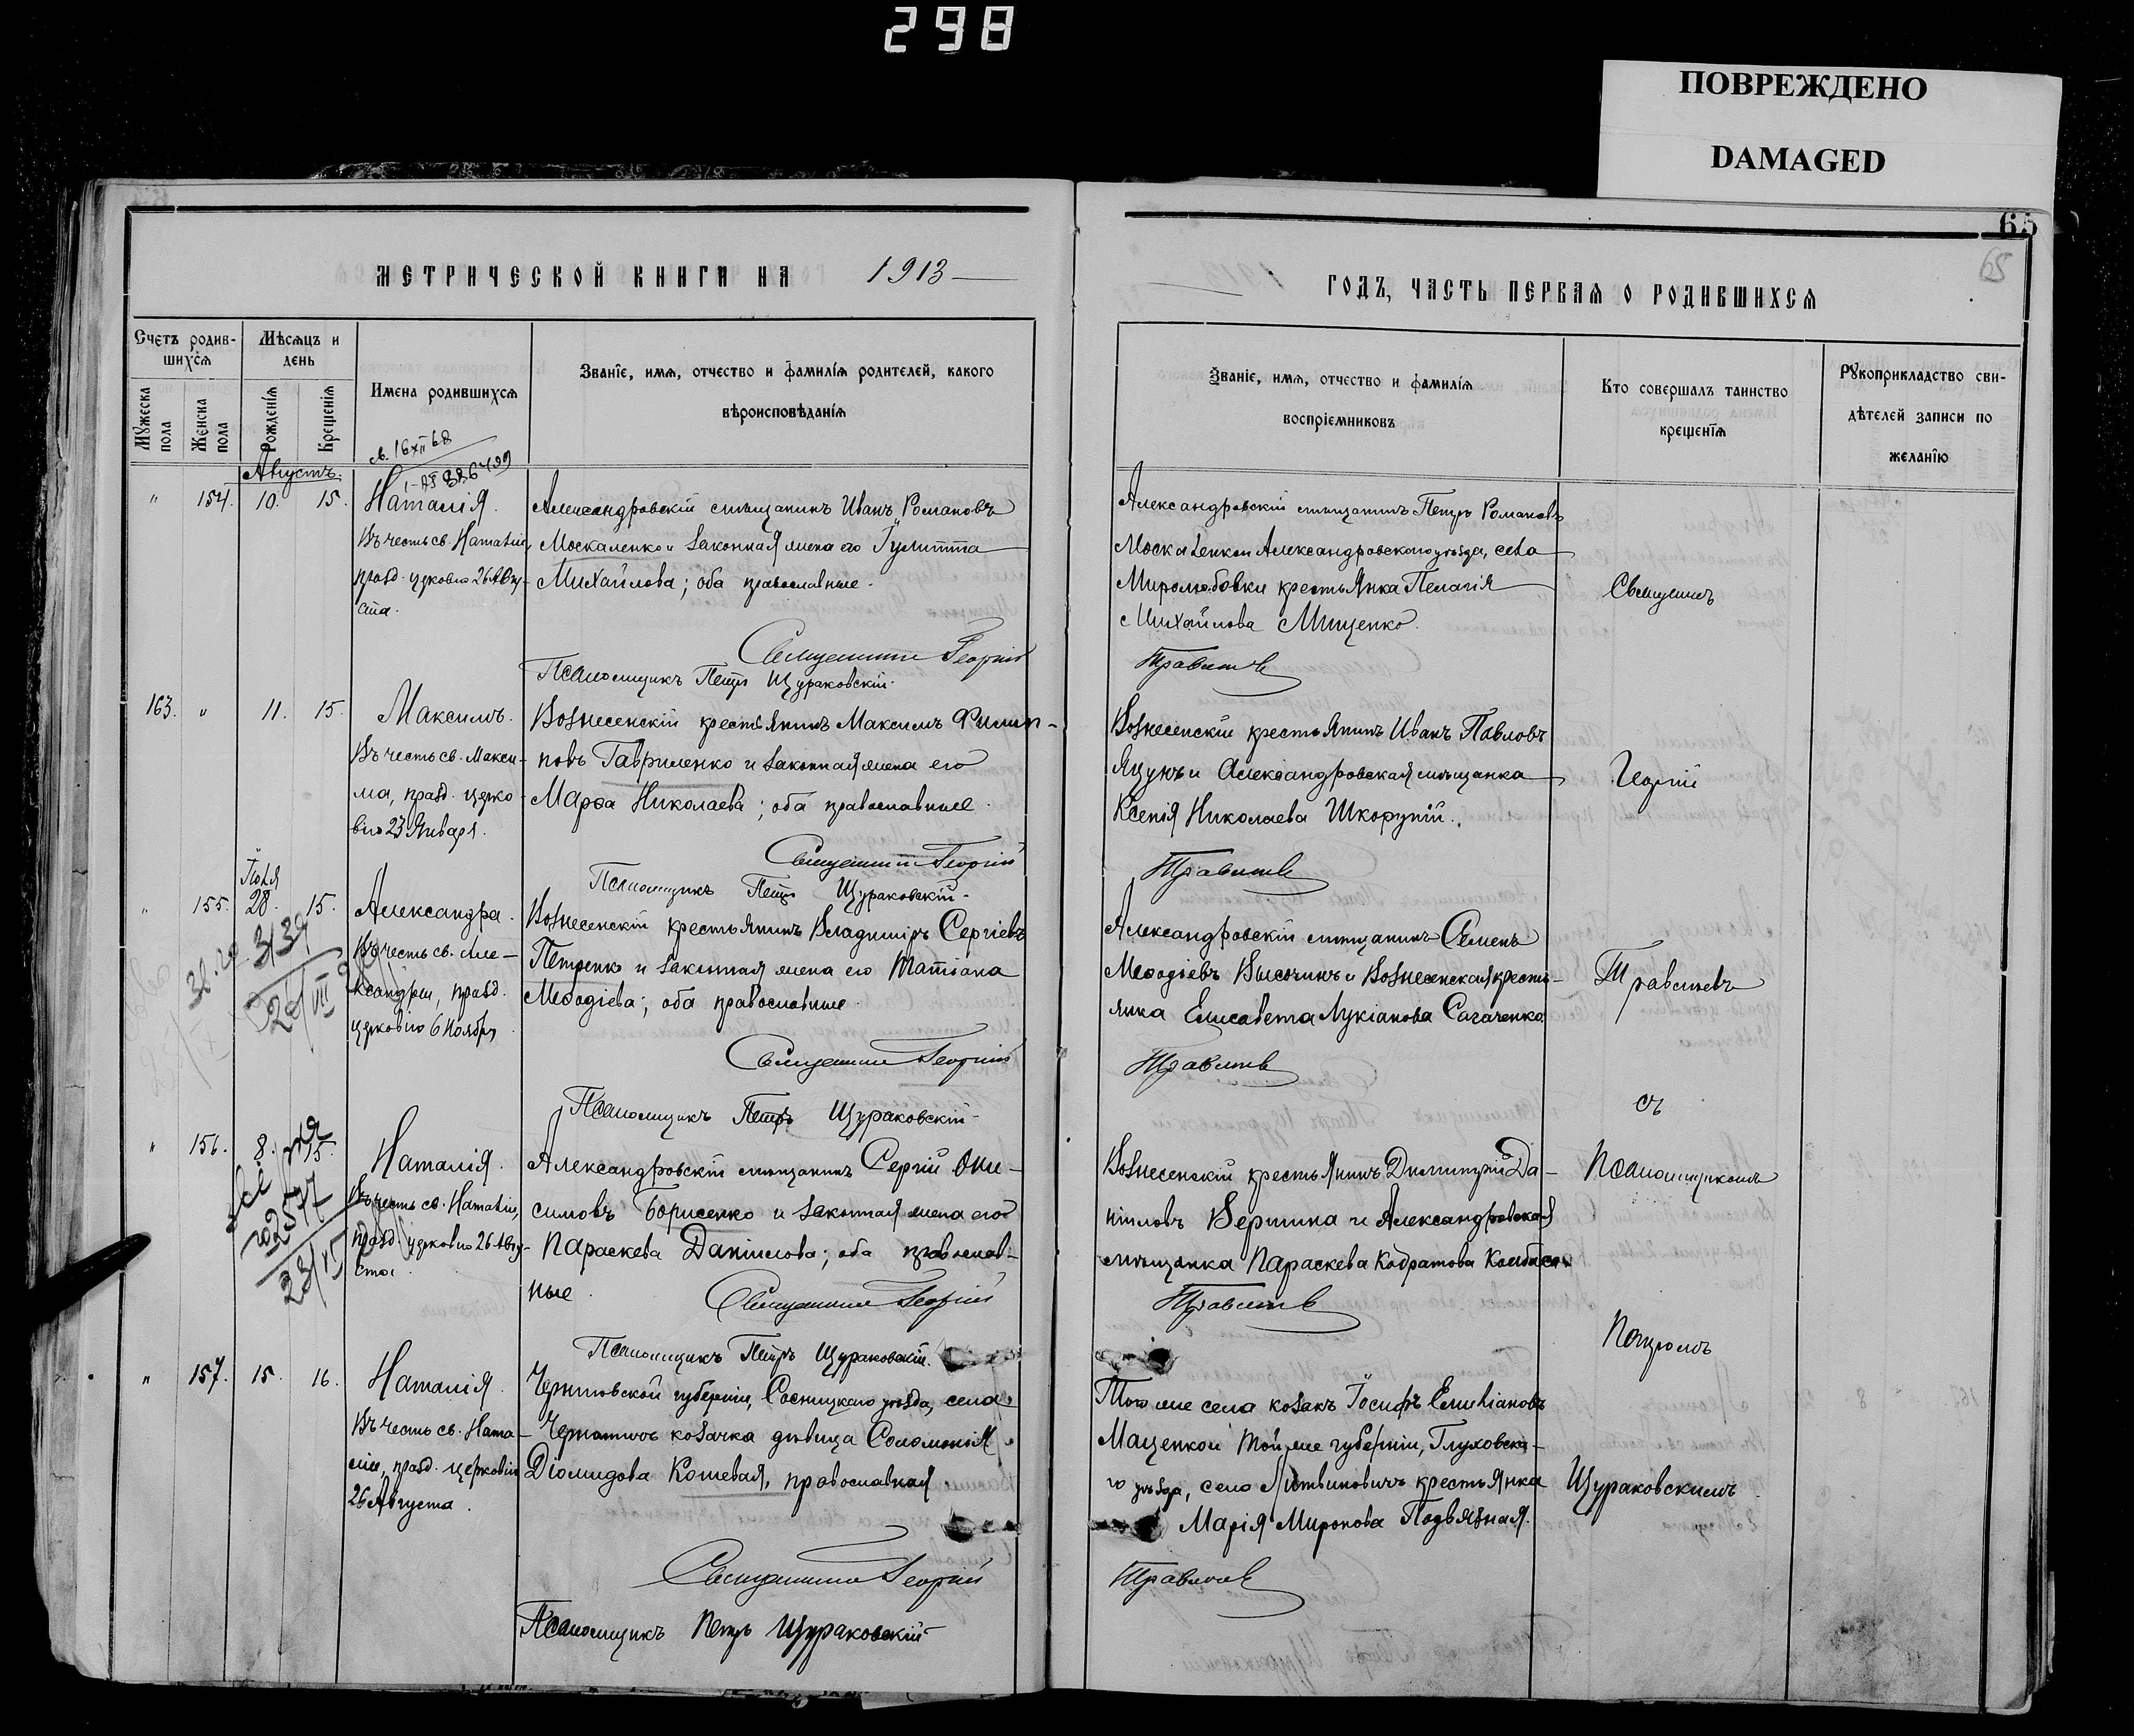 298
ПОВРЕЖДЕНО
DAMAGED
65
65
МЕТРИЧЕСКОЙ КНИГИ НА 1913
Счетъ родив-
шихся
Мѣсяцъ и
день
Мужеска
пола
Женска
пола
Рожденія
Крещенія
Имена родившихся
Званіе, имя, отчество и фамилія родителей, какого
вѣроисповѣданія
Августъ.
" 154. 10. 15.
Наталія.
Въ честь св. Наталіи,
празд. церковію 26 Авгу-
ста.
Александровскій мѣщанинъ Иванъ Романовъ
Москаленко и законная жена его Іулитта
Михайлова; оба православные.
Священникъ Георгій
Псаломщикъ Петръ Щураковскій.
163. " 11. 15.
Максимъ.
Въ честь св. Макси-
ма, празд. церко-
вію 23 Января.
Вознесенскій крестьянинъ Максимъ Филип-
повъ Гавриленко и законная жена его
Марѳа Николаева; оба православные.
Священникъ Георгій
Псаломщикъ Петръ Щураковскій.
Іюля
" 155. 28. 15.
Александра.
Въ честь св. Але-
ксандры, празд.
церковію 6 Ноября
Вознесенскій крестьянинъ Владиміръ Сергіевъ
Петренко и законная жена его Татіана
Меѳодіева; оба православные.
Священникъ Георгій
Псаломщикъ Петръ Щураковскій.
" 156. 8. 15.
Наталія.
Въ честь св. Наталіи,
празд. церковію 26 Авгу-
ста.
Александровскій мѣщанинъ Сергій Они-
симовъ Борисенко и законная жена его
Параскева Даніилова; оба православ-
ные.
Священникъ Георгій
Псаломщикъ Петръ Щураковскій.
" 157. 15. 16.
Наталія.
Въ честь св. Ната-
ліи, празд. церковію
26 Августа.
Черниговской губерніи, Сосницкаго уѣзда, села
козачка дѣвица Соломонія
Діомидова Кошевая, православная.
Священникъ Георгій
Псаломщикъ Петръ Щураковскій
ГОДЪ, ЧАСТЬ ПЕРВАЯ О РОДИВШИХСЯ
Званіе, имя, отчество и фамилія
воспріемниковъ
Кто совершалъ таинство
крещенія
Рукоприкладство сви-
дѣтелей записи по
желанію
Александровскій мѣщанинъ Петръ Романовъ
Москаленко и Александровскаго уѣзда, села
Миролюбовки крестьянка Пелагія
Михайлова Мищенко.
Травинъ
Вознесенскій крестьянинъ Иванъ Павловъ
Яцунъ и Александровская мѣщанка
Ксенія Николаева Шкорупій.
Александровскій мѣщанинъ Семенъ
Меѳодіевъ Высочинъ и Вознесенская кресть-
янка Елисавета Лукіанова Сагаченко.
Вознесенскій крестьянинъ Димитрій Да-
ніиловъ Вершина и Александровская
мѣщанка Параскева Кодратова
Того же села козакъ Іосифъ Емиліановъ
Маценко и той же губерніи, Глуховска-
го уѣзда, села Литвиновичъ крестьянка
Марія Миронова Подвязная.
Священникъ
Георгій
съ
Псаломщикомъ
Петромъ
Щураковскимъ.